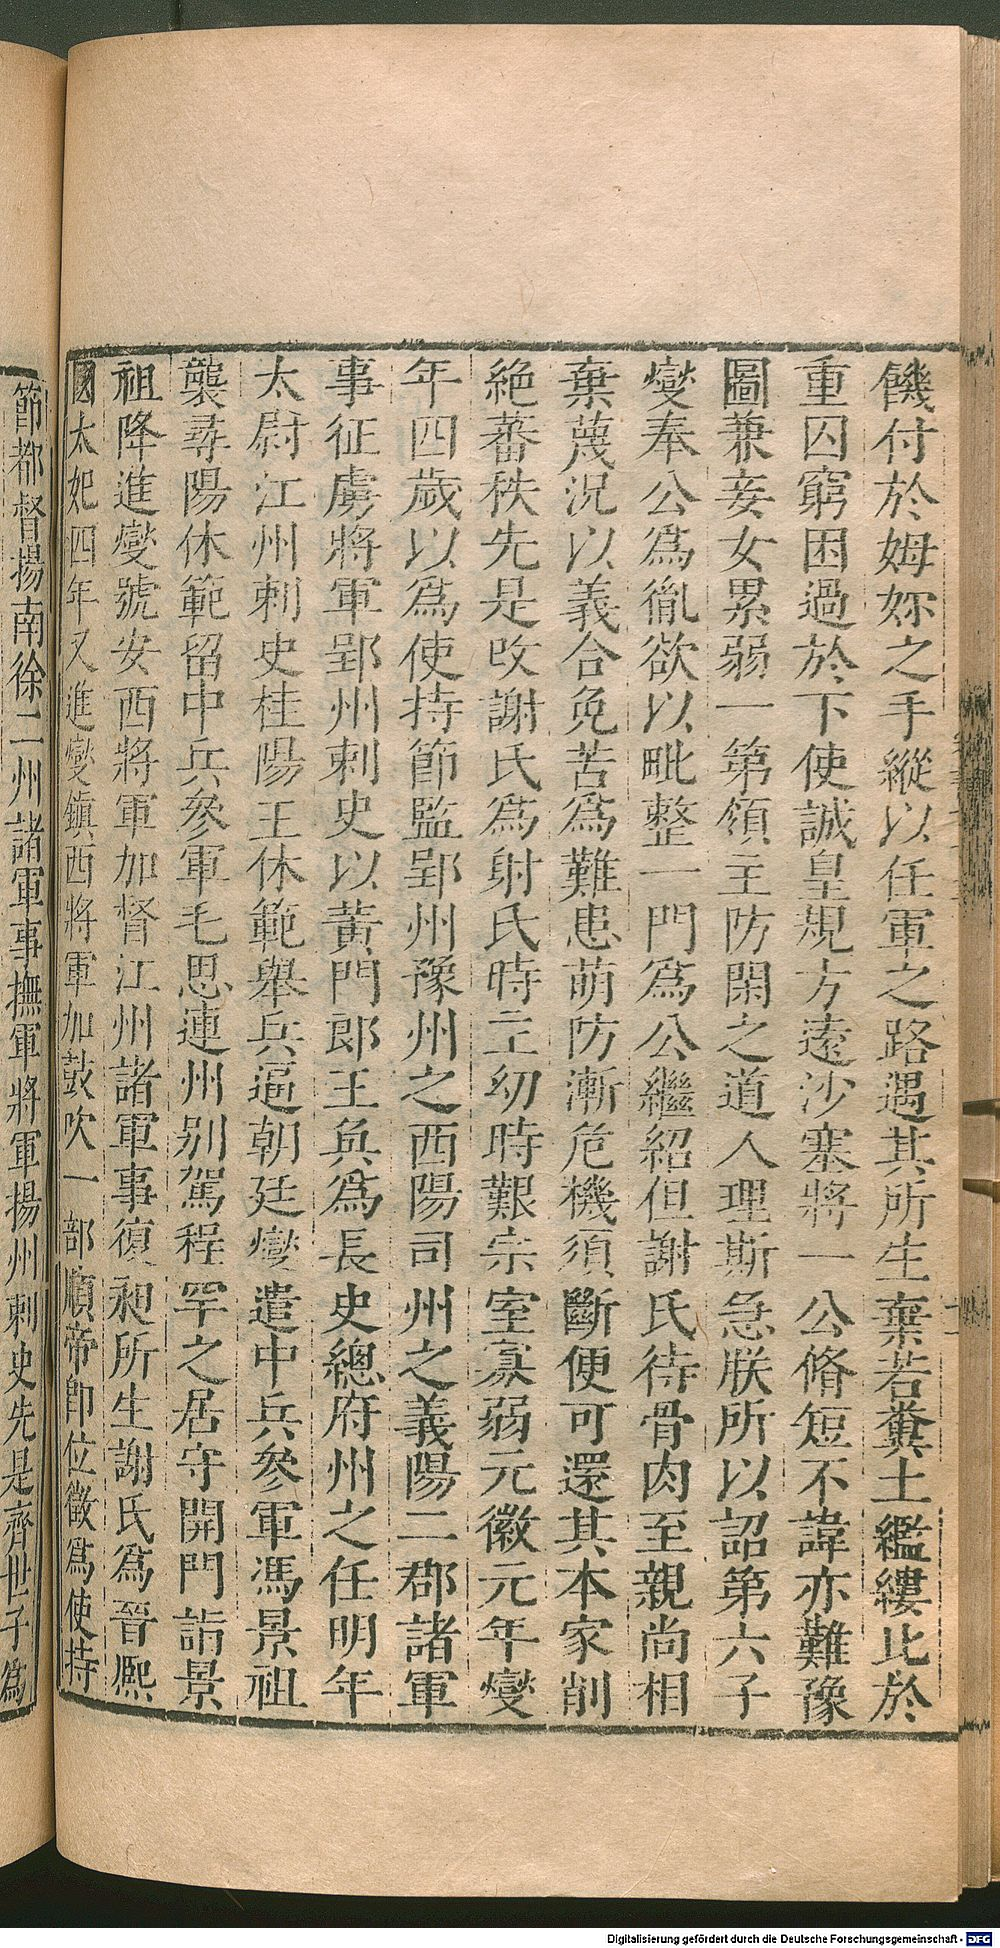 饑付於姆妳之手縱以任軍之路遇其所生棄若糞土繿縷比於
重囚窮困過於下使誠皇規方遠沙塞將一公脩短不諱亦難豫
圖兼妾女累弱一第領主防閑之道人理斯急朕所以詔第六子
燮奉公爲胤欲以毗整一門爲公繼紹但謝氏待骨肉至親尚相
棄蔑況以義合免苦爲難患萌防漸危機須斷便可還其本家削
絶蕃秩先是改謝氏爲射氏時主幼時艱宗室寡弱元徽元年燮
年四歳以爲使持節監郢州豫州之西陽司州之義陽二郡諸軍
事征虜將軍郢州刺史以黃門郎王奐爲長史總府州之任明年
太尉江州刺史桂陽王休範舉兵逼朝廷燮遣中兵參軍馮景祖
襲尋陽休範留中兵參軍毛思連州别駕程罕之居守開門詣景
祖降進燮號安西將軍加督江州諸軍事復昶所生謝氏爲晉熙
國太妃四年又進燮鎮西將軍加鼓吹一部順帝卽位徵爲使持
節都督揚南徐二州諸軍事撫軍將軍揚州刺史先是齊世子爲
Digitalisierung gefördert durch die Deutsche Forschungsgemeinschaft - DFG